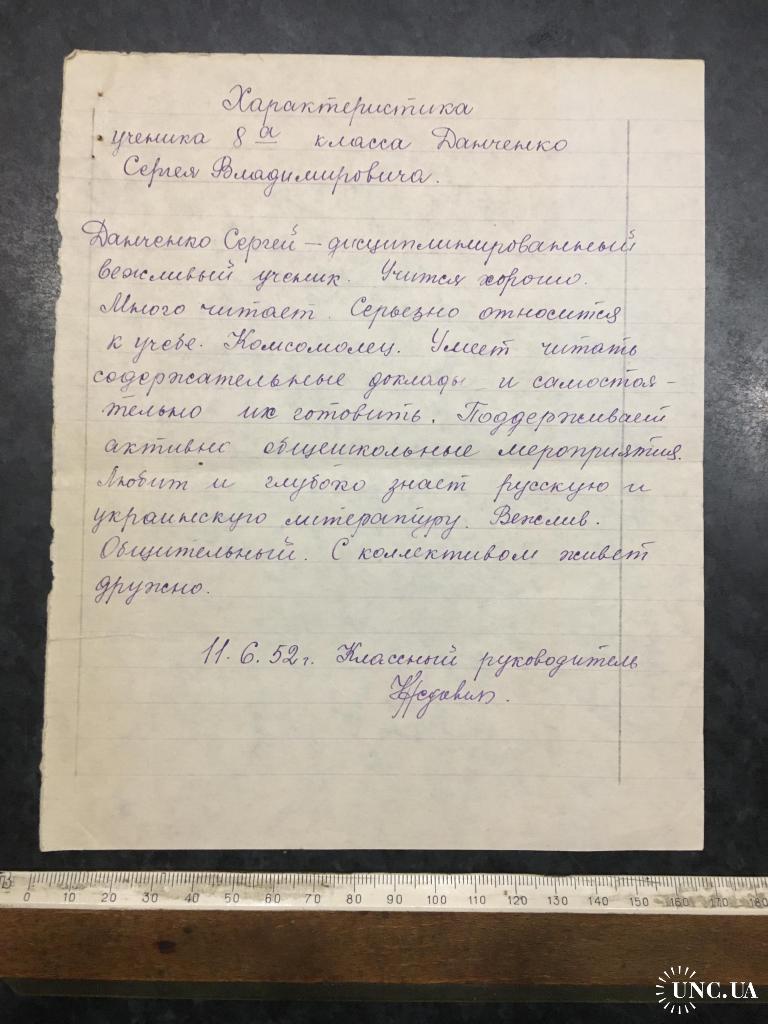 Характеристика
ученика 8 а класса Данченко
Сергея Владимировича.
Данченко Сергей – дисциплинированный
вежливый ученик. Учится хорошо.
Много читает. Серьезно относится
к учебе. Комсомолец. Умеет читать
содержательные доклады и самостоя-
тельно их готовить. Поддерживает
активно общешкольные мероприятия.
Любит и глубоко знает русскую и
украинскую литературу. Вежлив.
Общительный. С коллективом живет
дружно.
11.6.52 г. Классный руководитель
0 10 20 30 40 50 60 70 80 90 100 110 120 130 140 150 160 170 180
UNC.UA